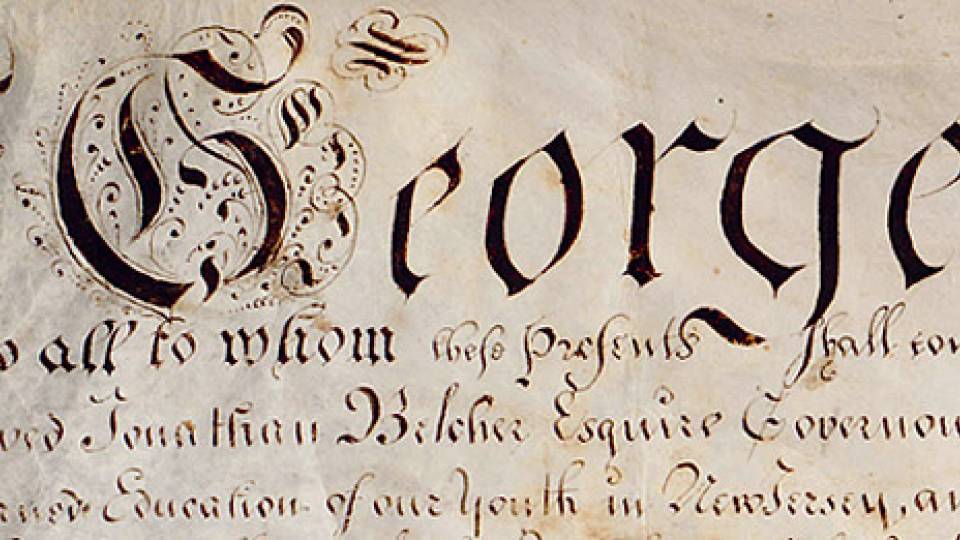 George
all to whom these Presents Shall
Jonathan Belcher Esquire Governour
Education of our Youth in New Jersey, an